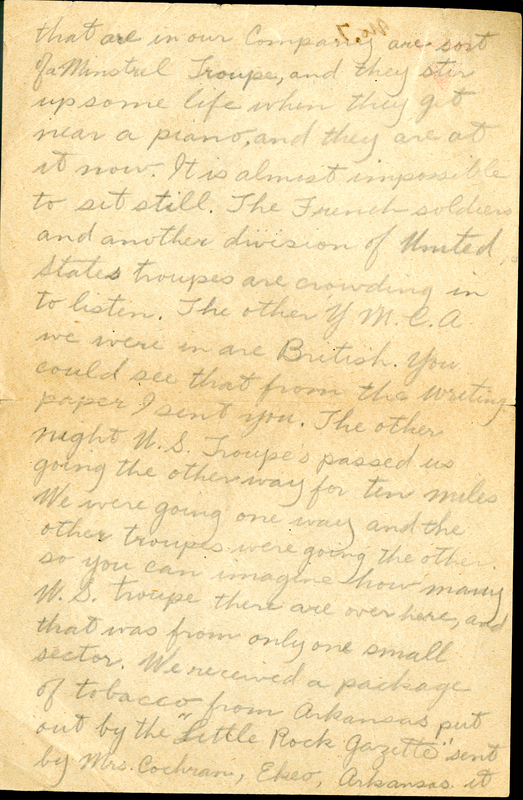 No. 7
that are in our Company are sort
of a Minstrel Troupe, and they stir
up some life when they get
near a piano, and they are at
it now. It is almost impossible
to sit still. The French soldiers
and another division of United
States troupes are crowding in
to listen. The other Y.M.C.A
we were in are British. You
could see that from the writing
paper I sent you. The other
night U.S. Troupes passed us
going the other way for ten miles
We were going one way and the
other troupes were going the other.
so you can imagine how many
U.S. troupe there are over here, and
that was from only one small
sector. We received a package
of tobacco from Arkansas put
out by the "Little Rock Gazette" sent
by Mrs. Cochran, Arkansas. it